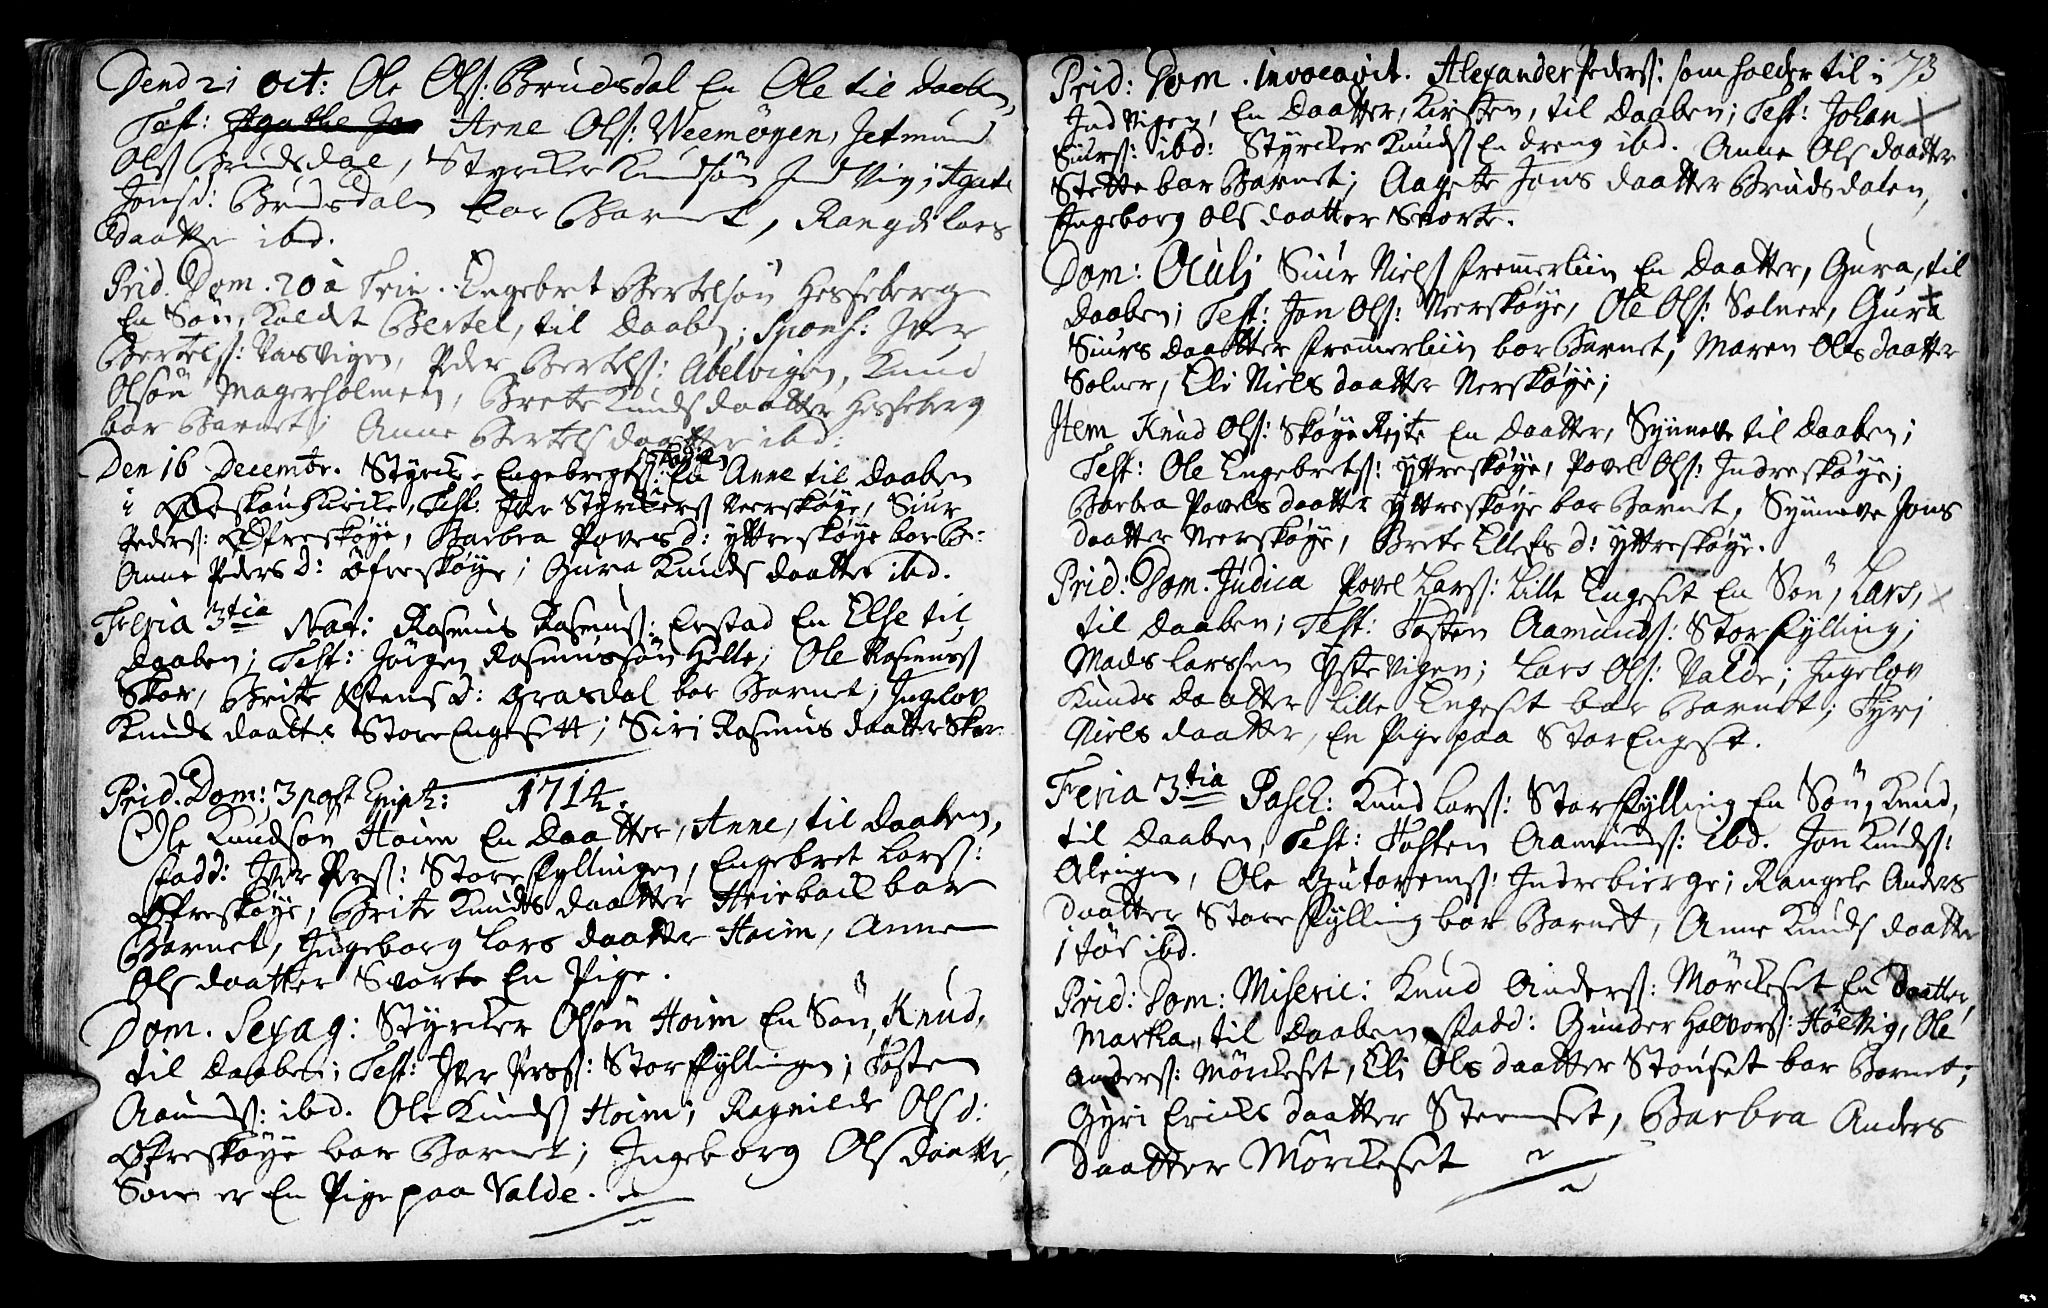 Dend 21 Oct: Ole Olss: Brudsdal En Ole til daaben,
Test: Arne Olss: Weemøyen, Jetmund
Olss Brudsdal, Styrcker Knudsøn Ind Vig; Agate
Jonsd: Brudsdalen bar Barnet, Rangdi Lars
Daatter ibd.
Prid. Dom. 20 à Trin. Engebret Bertelsøn Hesseberg
En Søn, kaldt Bertel, til Daaben; Spons: Iver
Bertelss: Vasvigen, Peder Bertelss: Abelvigen, Knud
Olsøn Magerholmen, Brete Knuds daatter Hesseberg
bar Barnet; Anne Bertels daatter ibd:
Den 16 Decembr. Styrck. Engebregtss: En Anne til Daaben
i Kircke, Test: Iver Styrckerss Neerskøye, Siur
Pederss: Øfreskøye, Barbra Povels d: Yttreskøye bar B:
Anne Peders d: Øfreskøye; Gura Knuds daatter ibd.
Feria 3tia Nat: Rasmus Rasmuss: Erstad En Else til
Daaben; Test: Jørgen Rasmussøn Helle, Ole Rasmuss
Skor, Brite Ostens d: Grasdal bar Barnet; Ingelov
Knuds daatter Store Engesett; Siri Rasmus daatter Skor
Prid. Dom: 3 post Epiph: 1714.
Ole Knudsøn Hoim En Daatter, Anne, til Daaben,
fadd: Iver Perss: Storefyllingen, Engebret Larss:
Øfreskøye, Brite Knuds daatter bar
Barnet, Ingeborg Lars daatter Hoim, Anne
Ols daatter Svorte En Pige.
Dom. Sexag: Styrcker Olsøn Hoim En Søn, Knud,
til Daaben; Test: Iver Perss: Storfyllingen; Tosten
Aamundss: ibd. Ole Knudss Hoim; Ragnilde Ols d:
Øfreskøye bar Barnet; Ingeborg Ols Daatter,
Som er En Pige paa Valde.
Prid: Dom. Invocavit. Alexander Pederss: som holder til i 73
Ind Vigen, En Daatter, Kirsten, til Daaben; Test: Johan
Siurss: ibd: Styrcker Knudss En dreng ibd. Anne Ols daatter
Stette bar Barnet; Aagotte Jons daatter Brudsdalen,
Ingeborg Ols daatter Svorte.
Dom: Oculi Siur Nielss fremerliin En Daatter, Gura, til
Daaben; Test: Jon Olss: Neerskøye, Ole Olss: Solner, Gura
Siurs daatter fremerliin bar Barnet; Maren Ols daatter
Solner, Eli Niels daatter Nerskøye;
Item Knud Olss: Skøye Rejte En Daatter, Synneve til Daaben;
Test: Ole Engebretss: Yttreskøye, Povel Olss: Indreskøye;
Barbra Povels daatter Yttreskøye bar Barnet, Synneve Jons
daatter Neerskøye, Brete Ellefs d: Yttreskøye.
Prid: Dom. Judica Povel Larss: Lille Engeset En Søn, Lars,
til Daaben; Test: Tosten Aamundss: Storfylling;
Mads Larssen Ystevigen; Lars Olss: Valde; Ingelov
Knuds Daatter Lille Engeset bar Barnet; Gyri
Niels daatter, En Pige paa Stor Engeset.
Feria 3tia Pasch: Knud Larss: Storfylling En Søn, Knud,
til Daaben, Test: Tosten Aamundss: ibd. Jon Knudss:
Ole Gutormss: Indrebierge; Rangele Anders
daatter Storefylling bar Barnet, Anne Knuds daatter
ibd.
Prid: Dom: Miseric: Knud Anderss: Mørckeset En Daatter,
Martha, til Daaben, fadd: Gunder Halvorss: Hølvig, Ole
Anderss: Mørckeset, Eli Ols daatter Stouset bar Barnet;
Gyri Ericks daatter Steenset, Barbra Anders
daatter Mørckeset